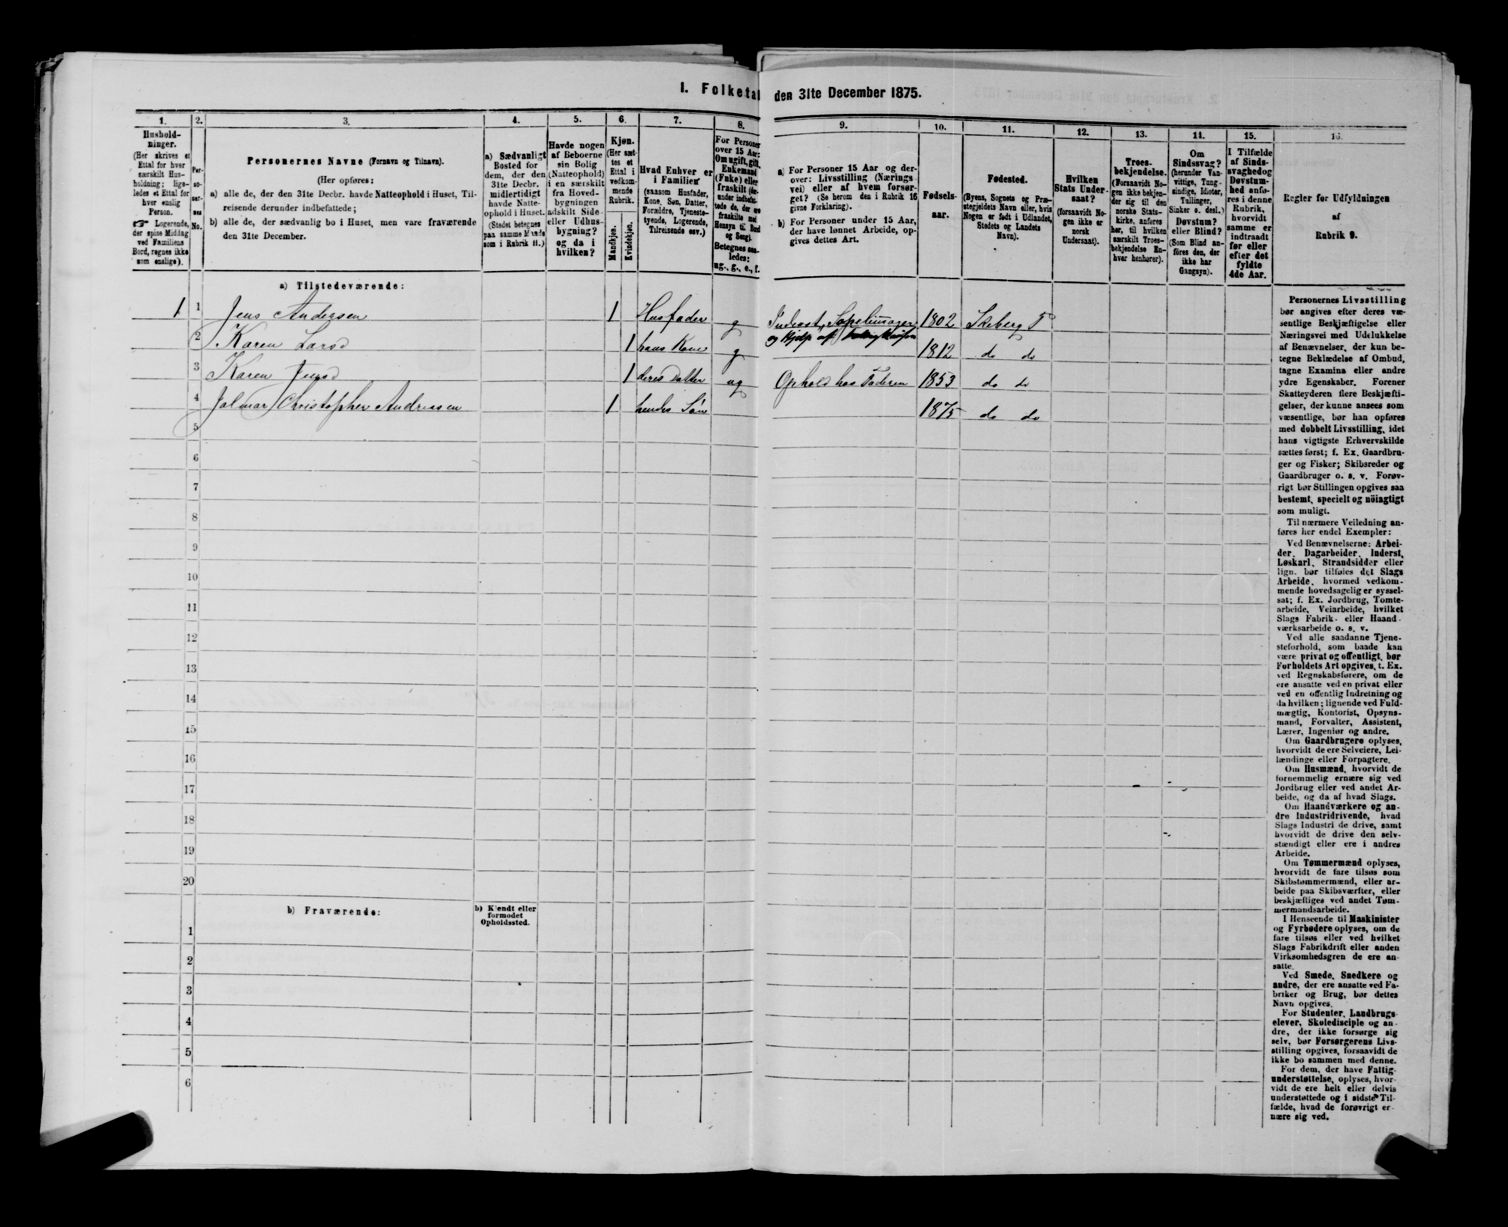 I. Folketal den 31te December 1875.
1. 2. 3. 4. 5. 6. 7. 8. 9. 10. 11. 12. 13. 14. 15. 16.
Hushold-
ninger.
(Her skrives et
Ettal for hver
særskilt Hus-
holdning; lige-
ledes et Ettal for
hver enslig
Person.
Logerende,
der spise Middag
ved Familiens
Bord, regnes ikke
som enslige).
Per-
so-
ner-
nes
No.
Personernes Navne (Fornavn og Tilnavn).
(Her opføres:
a) alle de, der den 31te Decbr. havde Natteophold i Huset, Til-
reisende derunder indbefattede;
b) alle de, der sædvanlig bo i Huset, men vare fraværende
den 31te December.
a) Sædvanligt
Bosted for
dem, der den
31te Decbr.
midlertidigt
havde Natte-
ophold i Huset.
(Stedet betegnes
paa samme Maade
som i Rubrik 11.)
Havde nogen
af Beboerne
sin Bolig
(Natteophold)
i en særskilt
fra Hoved-
bygningen
adskilt Side-
eller Udhus-
bygning?
og da i
hvilken?
Kjøn.
(Her sæt-
tes et
Ettal i
vedkom-
mende
Rubrik.
Mandkjøn.
Kvindekjøn.
Hvad Enhver er
i Familien
(saasom Husfader,
Kone, Søn, Datter,
Forældre, Tjeneste-
tyende, Logerende,
Tilreisende osv.)
For Personer
over 15 Aar:
Om ugift, gift,
Enkemand
(Enke) eller
fraskilt (der-
under indbefat-
tede de, der ere
fraskilte med
Hensyn til Bord
og Seng).
Betegnes saa-
ledes:
ug., g., e., f.
a) For Personer 15 Aar og der-
over: Livsstilling (Nærings-
vei) eller af hvem forsør-
get? (Se herom den i Rubrik 16
givne Forklaring).
b) For Personer under 15 Aar,
der have lønnet Arbeide, op-
gives dettes Art.
Fødsels-
aar.
Fødested.
(Byens, Sognets og Præ-
stegjeldets Navn eller, hvis
Nogen er født i Udlandet,
Stedets og Landets
Navn).
Hvilken
Stats Under-
saat?
(forsaavidt No-
gen ikke er
norsk
Undersaat).
Troes-
bekjendelse.
(Forsaavidt No-
gen ikke bekjen-
der sig til den
norske Stats-
kirke, anføres
her, til hvilken
særskilt Troes-
bekjendelse En-
hver henhører).
Om
Sindssvag?
(herunder Van-
vittige, Tung-
sindige, Idioter,
Tullinger,
Sinker o. desl.)
Døvstum?
eller Blind?
(Som Blind an-
føres den, der
ikke har
Gangsyn).
I Tilfælde
af Sinds-
svaghed og
Døvstum-
hed anfø-
res i denne
Rubrik,
hvorvidt
samme er
indtraadt
før eller
efter det
fyldte
4de Aar.
Regler for Udfyldningen
af
Rubrik 9.
a) Tilstedeværende:
1 1 Jens Andersen 1 Husfader g Inderst, 1802 Skiberg P
og Hjelp af
2 Karen Larsd 1 hans Kone g 1812 do do
3 Karen Jensd 1 deres Datter ug Ophold hos Faderen 1853 do do
4 Jalmar Christopher Andreasen 1 hendes Søn 1875 do do
5
6
7
8
9
10
11
12
13
14
15
16
17
18
19
20
b) Fraværende:
b) Kjendt eller
formodet
Opholdssted.
1
2
3
4
5
6
Personernes Livsstilling
bør angives efter deres væ-
sentlige Beskjæftigelse eller
Næringsvei med Udelukkelse
af Benævnelser, der kun be-
tegne Beklædelse af Ombud,
tagne Examina eller andre
ydre Egenskaber. Forener
Skatteyderen flere Beskjæfti-
gelser, der kunne ansees som
væsentlige, bør han opføres
med dobbelt Livsstilling, idet
hans vigtigste Erhvervskilde
sættes først; f. Ex. Gaardbru-
ger og Fisker; Skibsreder og
Gaardbruger o. s. v. Forøv-
rigt bør Stillingen opgives saa
bestemt, specielt og nøiagtigt
som muligt.
Til nærmere Veiledning an-
føres her endel Exempler:
Ved Benævnelserne: Arbei-
der, Dagarbeider, Inderst,
Løskarl, Strandsidder eller
lign. bør tilføies det Slags
Arbeide, hvormed vedkom-
mende hovedsagelig er syssel-
sat; f. Ex. Jordbrug, Tomte-
arbeide, Veiarbeide, hvilket
Slags Fabrik- eller Haand-
værksarbeide o. s. v.
Ved alle saadanne Tjene-
steforhold, som baade kan
være privat og offentligt, bør
Forholdets Art opgives, t. Ex.
ved Regnskabsførere, om de
ere ansatte ved en privat eller
ved en offentlig Indretning og
da hvilken; lignende ved Fuld-
mægtig, Kontorist, Opsyns-
mand, Forvalter, Assistent,
Lærer, Ingeniør og andre.
Om Gaardbrugere oplyses,
hvorvidt de ere Selveiere, Lei-
lændinge eller Forpagtere.
Om Husmænd, hvorvidt de
fornemmelig ernære sig ved
Jordbrug eller ved andet Ar-
beide, og da af hvad Slags.
Om Haandværkere og an-
dre Industridrivende, hvad
Slags Industri de drive, samt
hvorvidt de drive den selv-
stændigt eller ere i andres
Arbeide.
Om Tømmermænd oplyses,
hvorvidt de fare tilsøs som
Skibstømmermænd, eller ar-
beide paa Skibsværfter, eller
beskjæftiges ved andet Tøm-
mermandsarbeide.
I Henseende til Maskinister
og Fyrbødere oplyses, om de
fare tilsøs eller ved hvilket
Slags Fabrikdrift eller anden
Virksomhedsgren de ere an-
satte.
Ved Smede, Snedkere og
andre, der ere ansatte ved Fa-
briker og Brug, bør dettes
Navn opgives.
For Studenter, Landbrugs-
elever, Skoledisciple og an-
dre, der ikke forsørge sig
selv, bør Forsørgerens Livs-
stilling opgives, forsaavidt de
ikke bo sammen med denne.
For dem, der have Fattig-
understøttelse, oplyses, hvor-
vidt de ere helt eller delvis
understøttede og i sidste Til-
fælde, hvad de forøvrigt er-
nære sig ved.